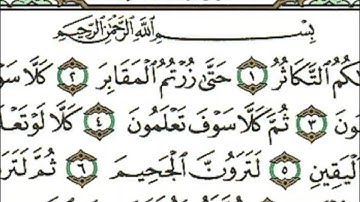 بِسْمِ اللَّهِ الرَّحْمَٰنِ الرَّحِيمِ
كُمُ التَّكَاثُرُ ١ حَتَّىٰ زُرْتُمُ الْمَقَابِرَ ٢ كَلَّا سَو
ونَ ٣ ثُمَّ كَلَّا سَوْفَ تَعْلَمُونَ ٤ كَلَّا لَوْ تَعْلَ
الْيَقِينِ ٥ لَتَرَوُنَّ الْجَحِيمَ ٦ ثُمَّ لَتَرَ